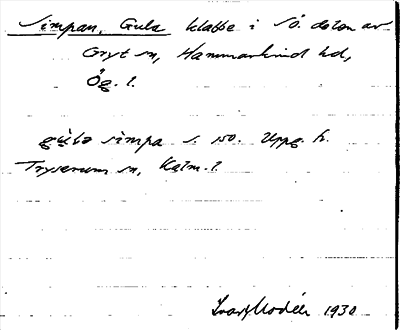 Simpan, Gula klabbe i SÖ. delen av
Gryt sn, Hammarkind hd,
Ög. l.
gula simpa s. so. Uppg. fr.
Tryserum sn, Kalm. l.
Ivar Modéer 1930